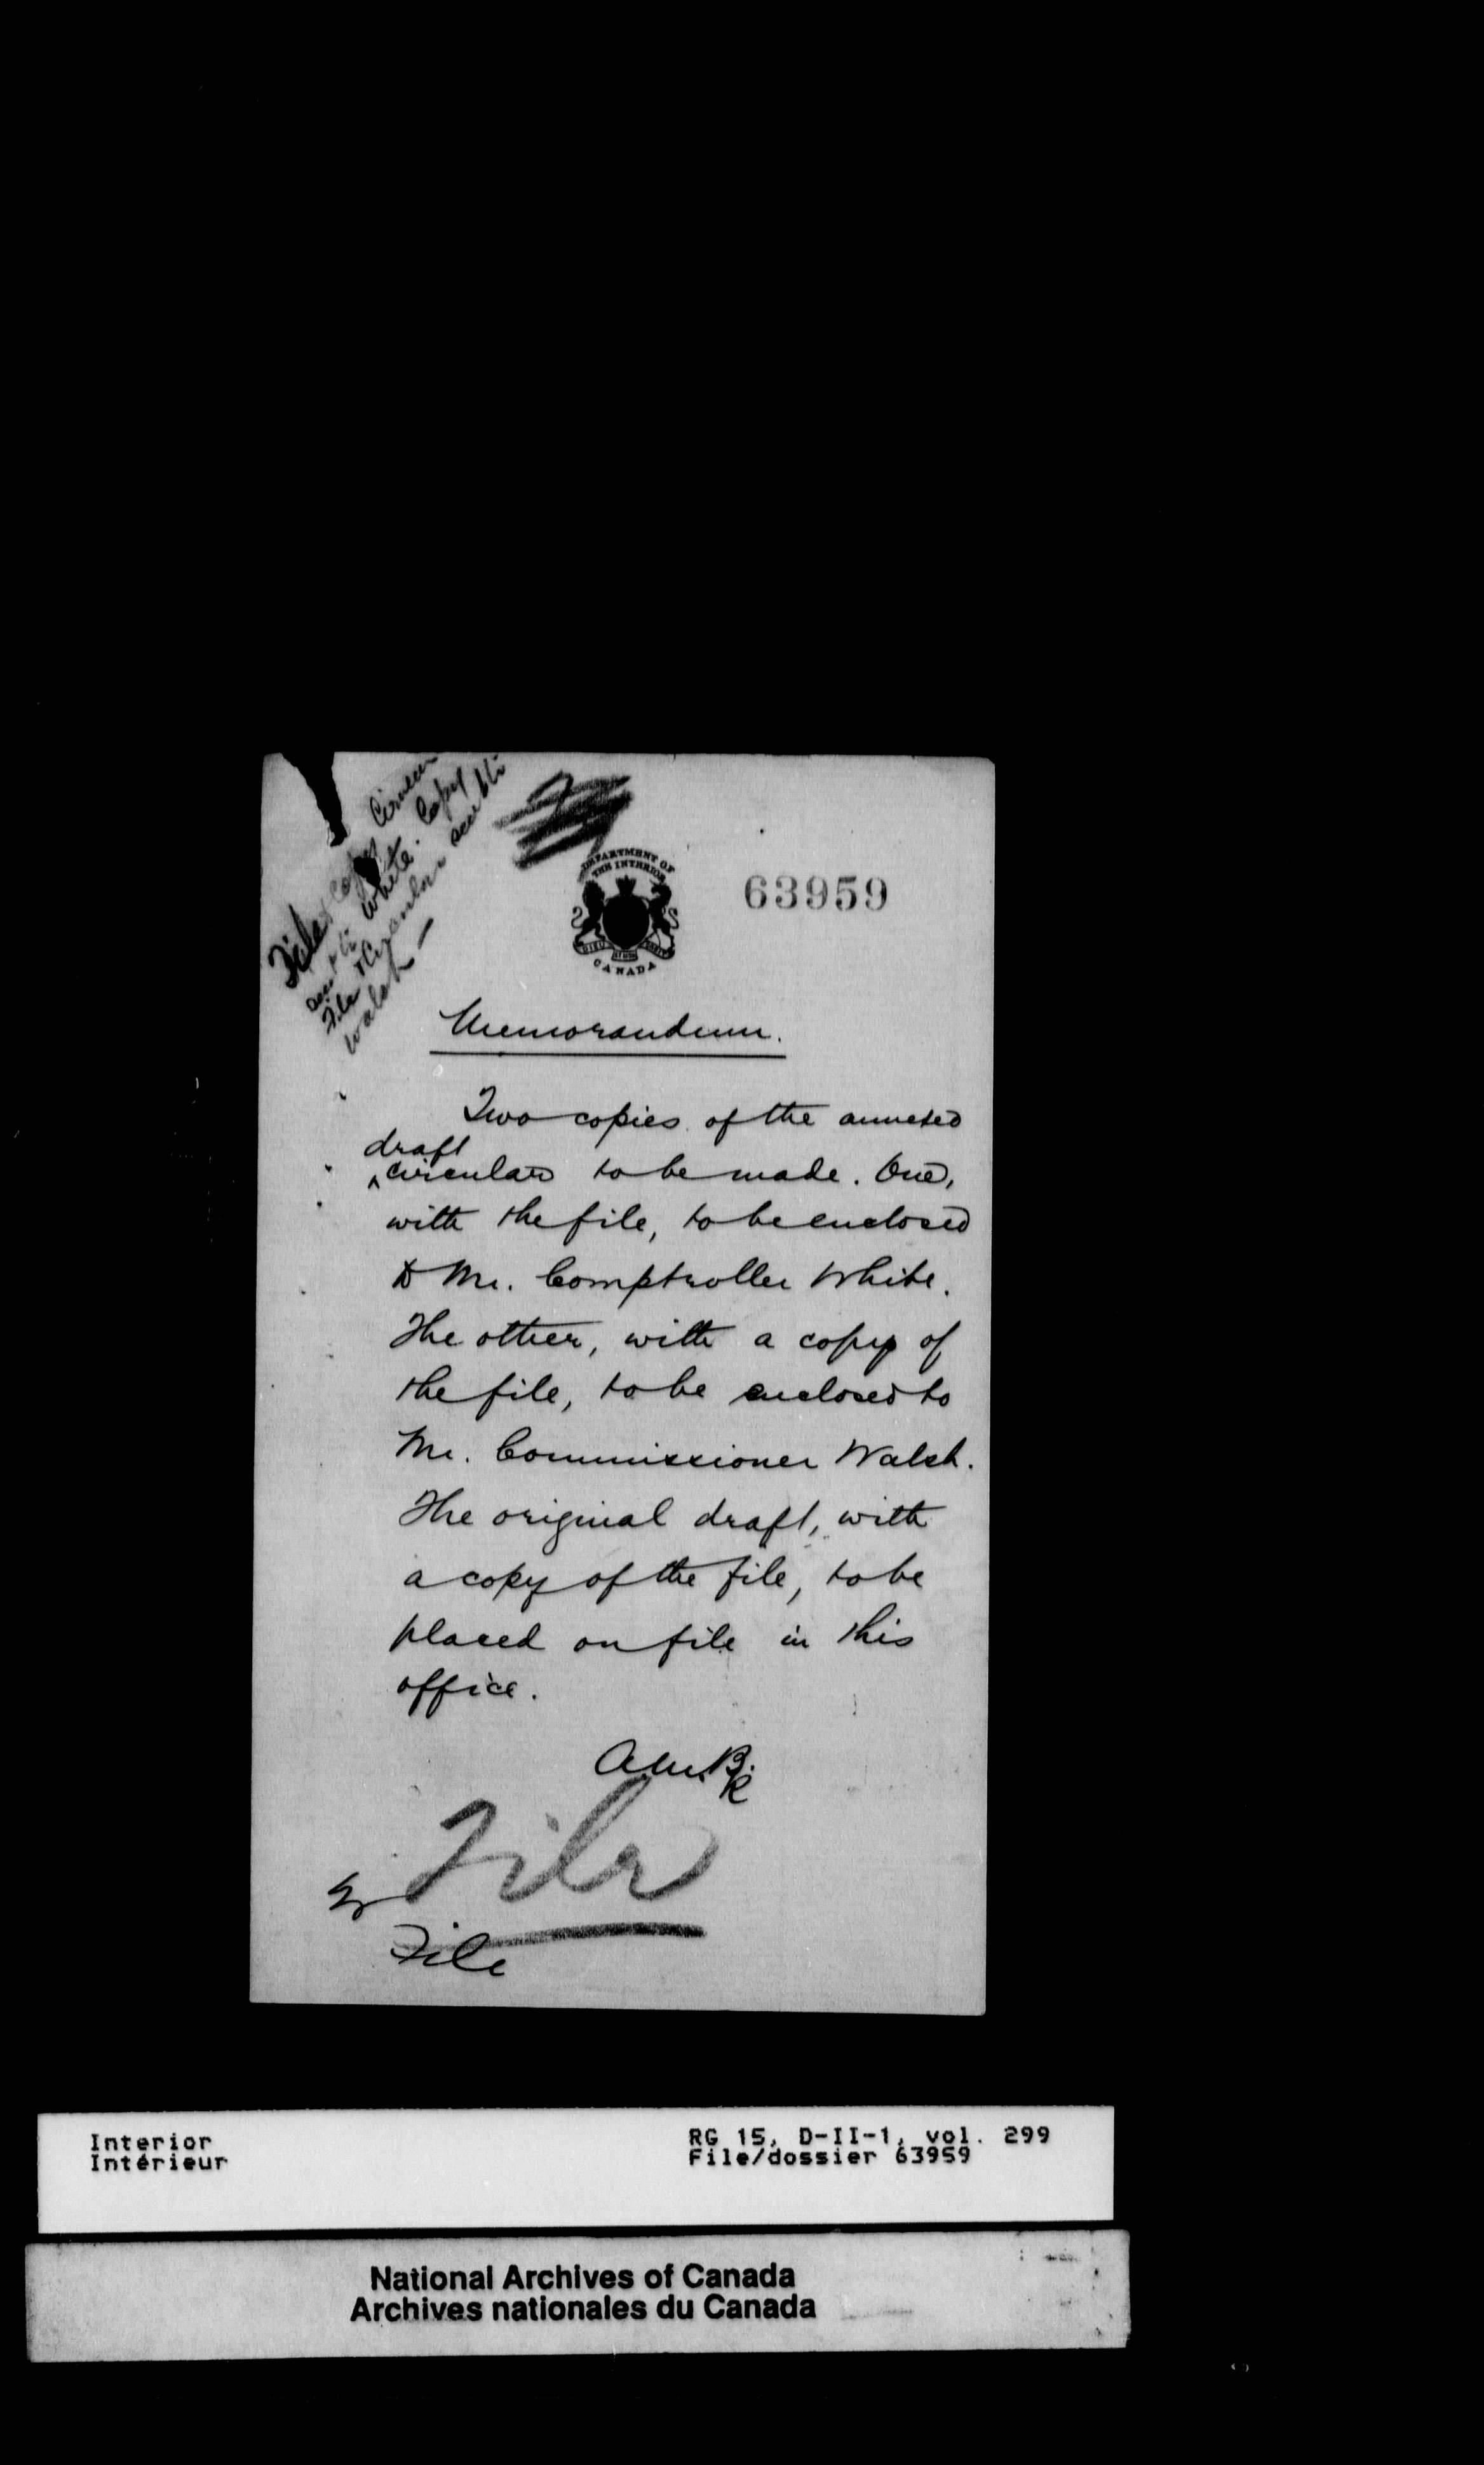 File & Copy Circular
sent to White. Copy
File & Circular sent to
Walsh —
DEPARTMENT OF
THE INTERIOR
DIEU ET MON DROIT
CANADA
63959
Memorandum.
Two copies of the annexed
draft
circular to be made. One,
with the file, to be enclosed
to Mr. Comptroller White.
The other, with a copy of
the file, to be enclosed to
Mr. Commissioner Walsh.
The original draft, with
a copy of the file, to be
placed on file in this
office.
A.M.B.
R
File
File
Interior
Intérieur
RG 15, D-II-1, vol. 299
File/dossier 63959
National Archives of Canada
Archives nationales du Canada